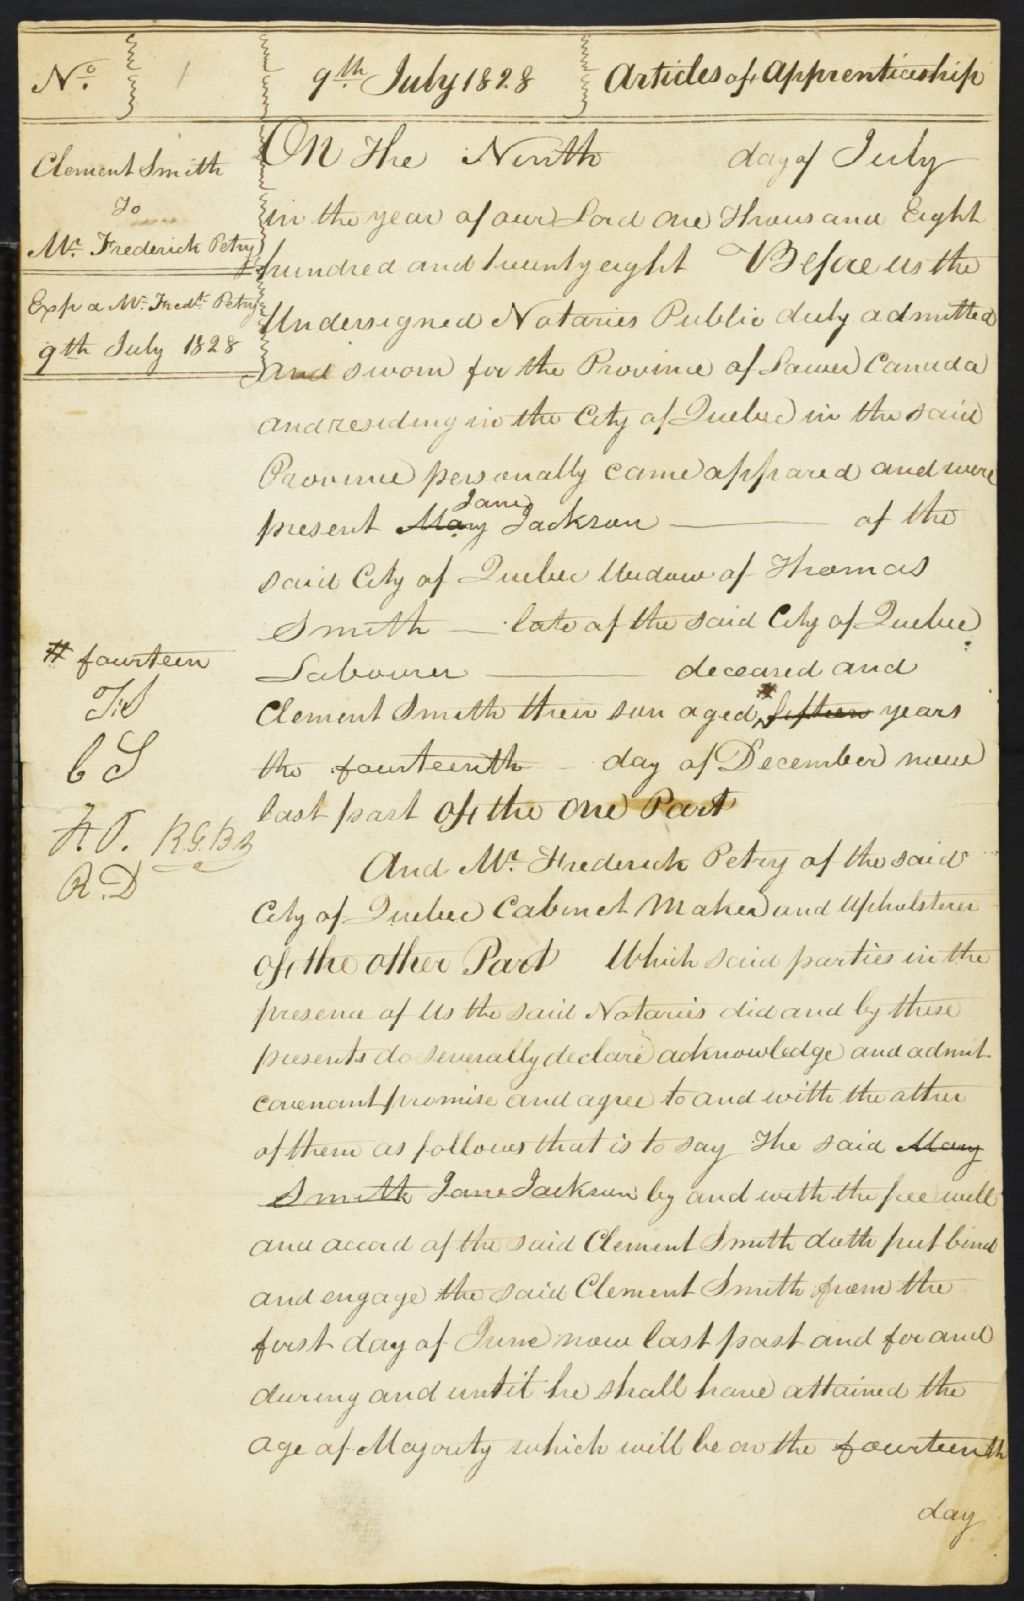 No. 1 9th July 1828 Articles of Apprenticeship
Clement Smith
To
Mr. Frederick Petry
Exp a Mr. Fredk. Petry
9th July 1828
On the Ninth day of July
in the year of our Lord One Thousand Eight
hundred and twenty eight Before us the
Undersigned Notaries Public duly admitted
and sworn for the Province of Lower Canada
and residing in the City of Quebec in the said
Province personally came appeared and were
Jane
present Mary Jackson of the
said City of Quebec Widow of Thomas
Smith late of the said City of Quebec
Labourer deceased and
Clement Smith their son aged # fifteen years
the fourteenth day of December now
last past of the One Part
# fourteen
T.S
C S
F.P. R.G.B
A.D
And Mr. Frederick Petry of the said
City of Quebec Cabinet Maker and Upholsterer
of the other Part Which said parties in the
presence of Us the said Notaries did and by these
presents do severally declare acknowledge and admit
covenant promise and agree to and with the other
of them as follows that is to say The said Mary
Smith Jane Jackson by and with the free will
and accord of the said Clement Smith doth put bind
and engage the said Clement Smith from the
first day of June now last past and for and
during and until he shall have attained the
age of Majority which will be on the fourteenth
day